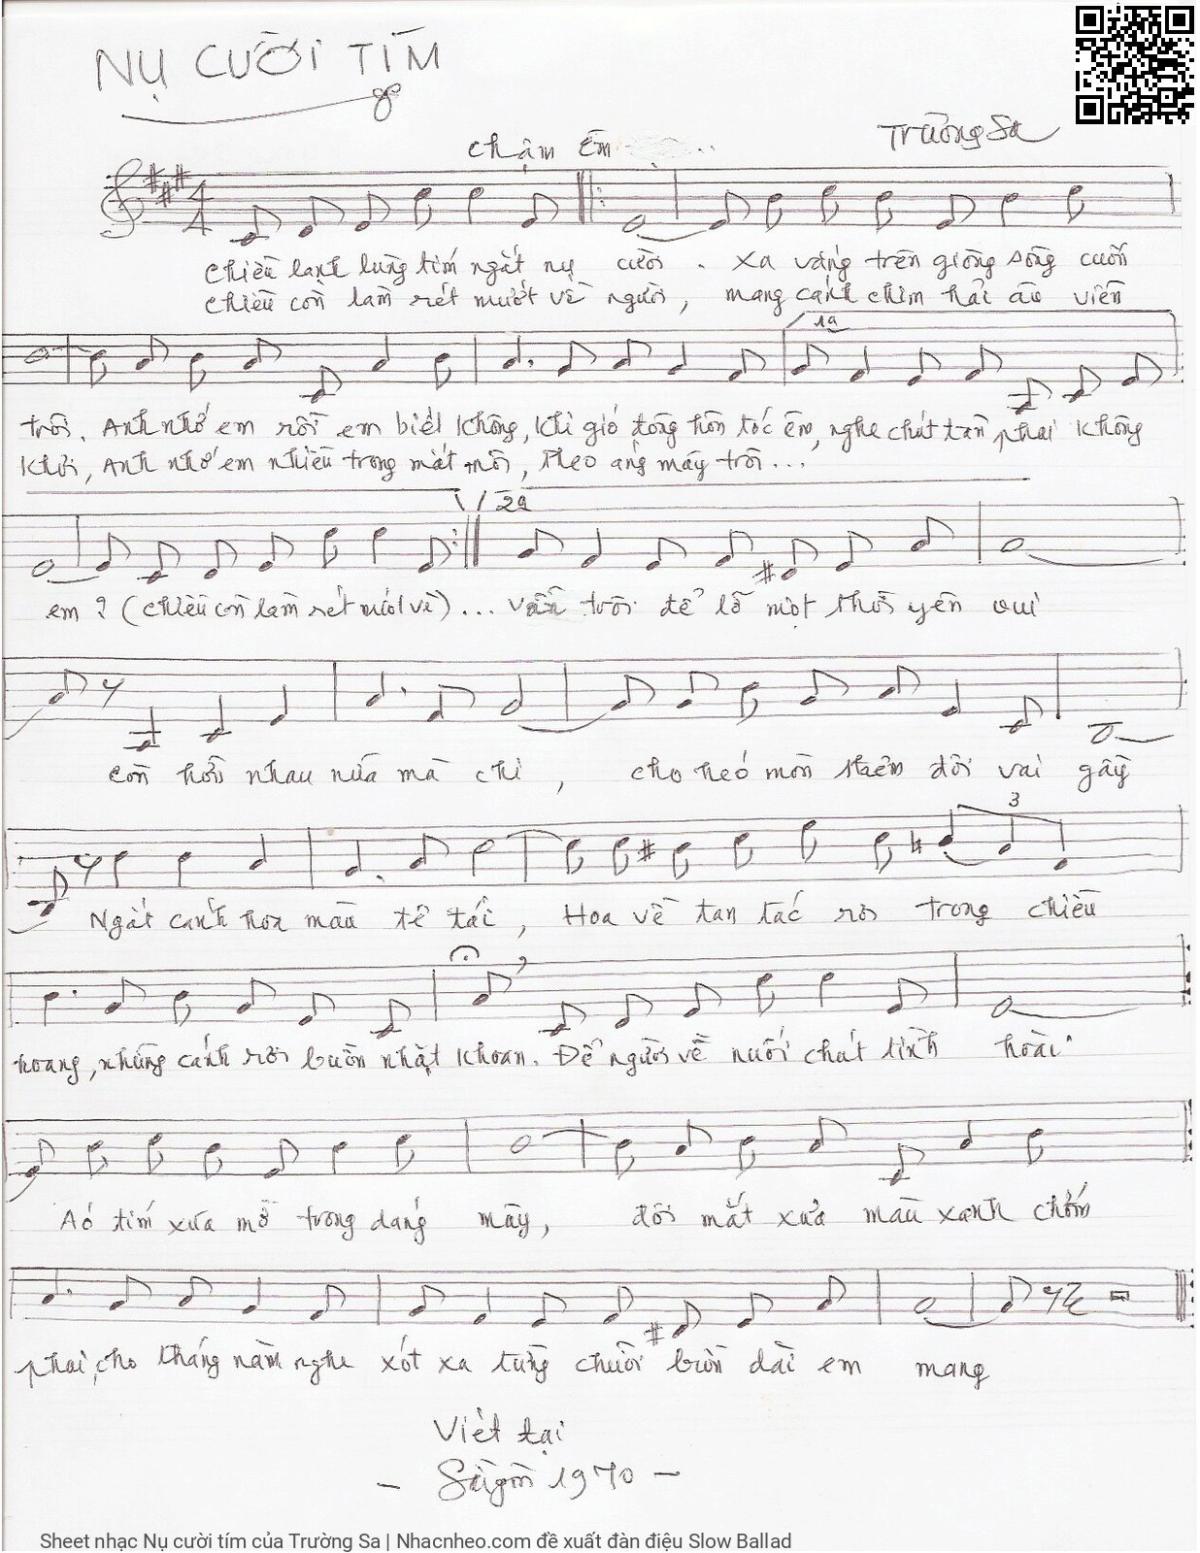 NỤ CƯỜI TÍM
Trường Sa
Chậm Êm
Chiều lạnh lùng tím ngát nụ cười . Xa vắng trên giòng sông cuốn
Chiều còn lam rét mướt về người, mang cánh chim hải âu viễn
1a
trôi. Anh nhớ em rồi em biết không, khi gió đông hôn tóc êm, nghe chút tàn phai không
khơi, Anh nhớ em nhiều trong mắt môi, theo áng mây trôi...
2a
em ? (chiều còn lam rét mướt về) ... trôi để lỡ một thuở yên vui
còn hỏi nhau nữa mà chi, cho héo mòn thêm đôi vai gầy
3
Ngát cánh hoa màu tê tái, Hoa về tan tác rơi trong chiều
hoang, những cánh rơi buồn nhặt khoan. Để người về nuối chút tình hoài
Áo tím xưa mờ trong dáng mây, đôi mắt xưa màu xanh chớm
phai, cho tháng năm nghe xót xa từng chuỗi buồn dài em mang
Viết tại
- Sàigòn 1970 -
Sheet nhạc Nụ cười tím của Trường Sa | Nhacnheo.com đề xuất đàn điệu Slow Ballad